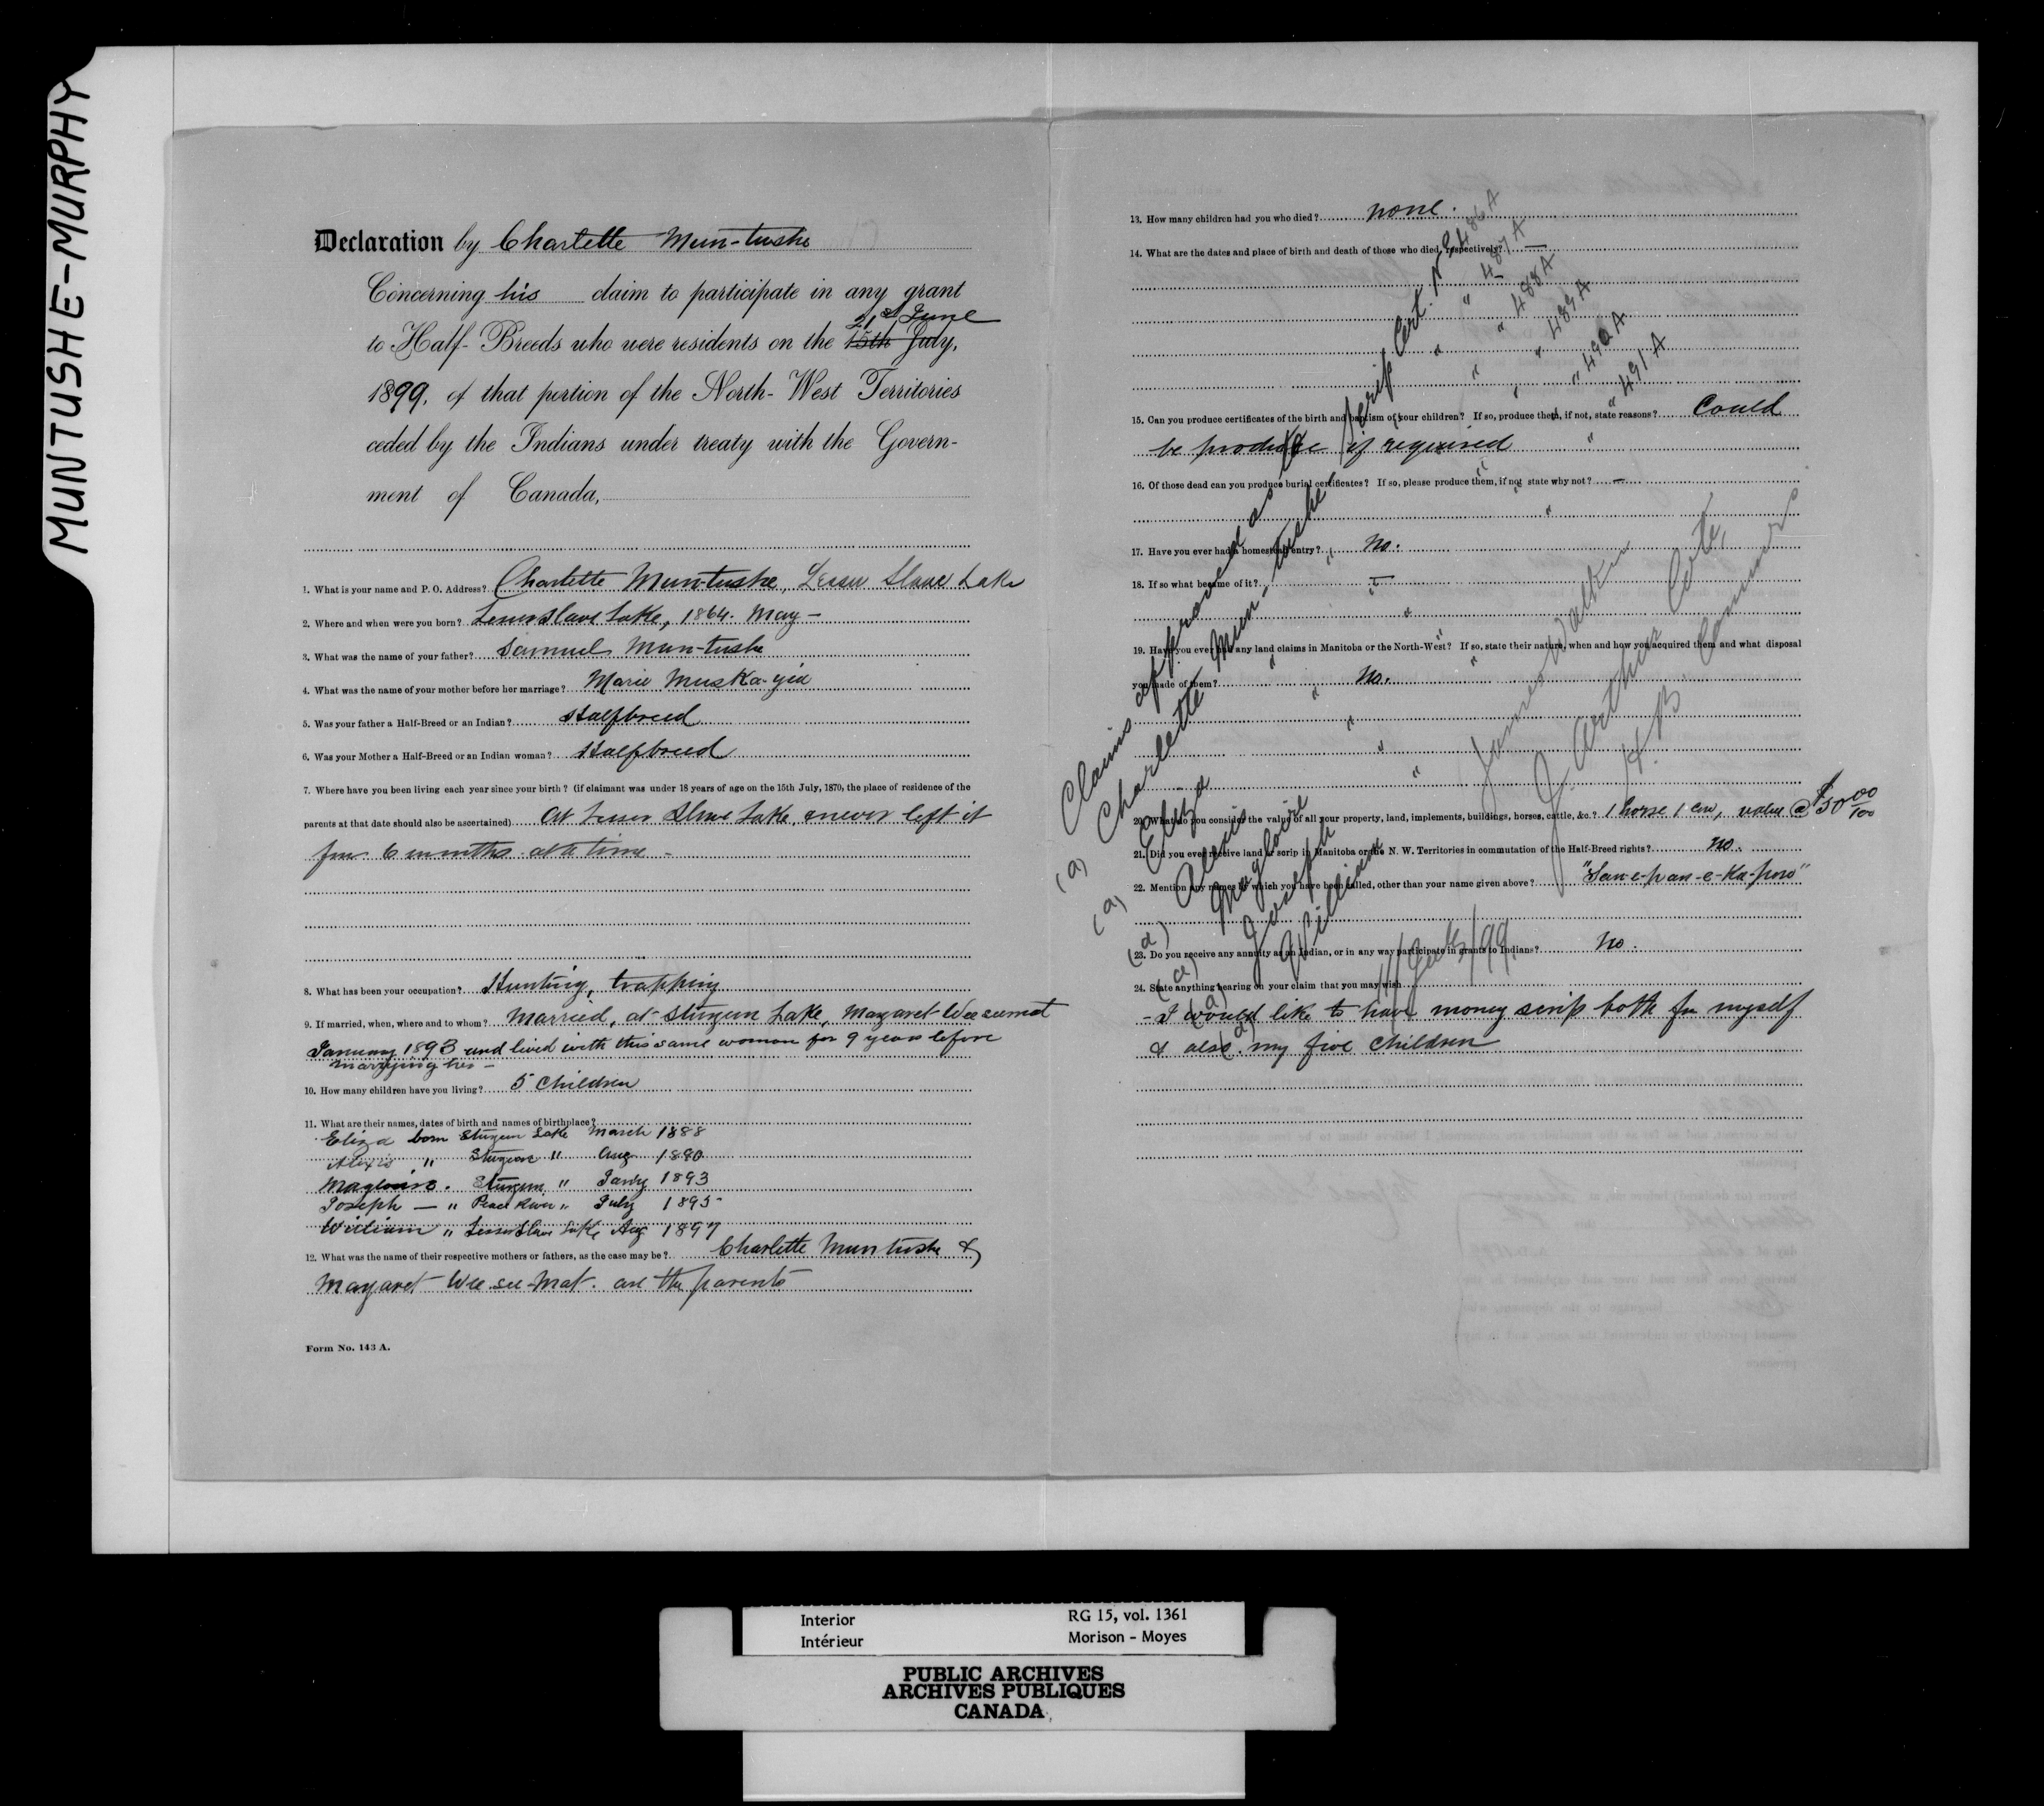 MUNTUSHE-MURPHY
Declaration by Charlette Mun-tushe
Concerning his claim to participate in any grant
21st June
to Half-Breeds who were residents on the 15th July,
1899, of that portion of the North-West Territories
ceded by the Indians under treaty with the Govern-
ment of Canada,
1. What is your name and P. O. Address? Charlette Mun-tushe, Lesser Slave Lake
2. Where and when were you born? Lesser Slave Lake, 1864. May —
3. What was the name of your father? Samuel Mun-tushe
4. What was the name of your mother before her marriage? Marie Muska-yia
5. Was your father a Half-Breed or an Indian? Halfbreed
6. Was your Mother a Half-Breed or an Indian woman? Halfbreed
7. Where have you been living each year since your birth? (if claimant was under 18 years of age on the 15th July, 1870, the place of residence of the
parents at that date should also be ascertained) At Lesser Slave Lake, never left it
for 6 months at a time —
8. What has been your occupation? Hunting, trapping
9. If married, when, where and to whom? Married, at Sturgeon Lake, Margaret Wee see mat
January 1893 and lived with this same woman for 9 years before
marrying her —
10. How many children have you living? 5 Children
11. What are their names, dates of birth and names of birthplace?
Eliza born Sturgeon Lake March 1888
Alexis " Sturgeon " Aug 1890
Magloire. Sturgeon " Janry 1893
Joseph — " Peace River " July 1895
William " Lesser Slave Lake Aug 1897
12. What was the name of their respective mothers or fathers, as the case may be? Charlette Mun tushe &
Margaret Wee-see-Mat. are the parents
Form No. 143 A.
13. How many children had you who died? none.
14. What are the dates and place of birth and death of those who died, respectively? —
15. Can you produce certificates of the birth and baptism of your children? If so, produce them, if not, state reasons? Could
be produce if required
16. Of those dead can you produce burial certificates? If so, please produce them, if not state why not? —
17. Have you ever had a homestead entry? No.
18. If so what became of it? —
19. Have you ever had any land claims in Manitoba or the North-West? If so, state their nature, when and how you acquired them and what disposal
you made of them? No.
20. What do you consider the value of all your property, land, implements, buildings, horses, cattle, &c.? 1 horse 1 cow, value @ $50 00/100
21. Did you ever receive land or scrip in Manitoba or the N. W. Territories in commutation of the Half-Breed rights? no.
22. Mention any names by which you have been called, other than your name given above? "San-e-pan-e-Ka-pow"
23. Do you receive any annuity as an Indian, or in any way participate in grants to Indians? No.
24. State anything bearing on your claim that you may wish
- I would like to have money scrip both for myself
& also my five children
Claims approved as
(a) Charlette Mun-tushe Scrip Cert. No 486 A
(a) Eliza " " " 487 A
(a) Alexis " " " 488 A
(a) Magloire " " " 489 A
(a) Joseph " " " 490 A
(a) William " " " 491 A
James Walker
J. Arthur Coté,
H. B. Commrs
Interior
Intérieur
RG 15, vol. 1361
Morison - Moyes
PUBLIC ARCHIVES
ARCHIVES PUBLIQUES
CANADA